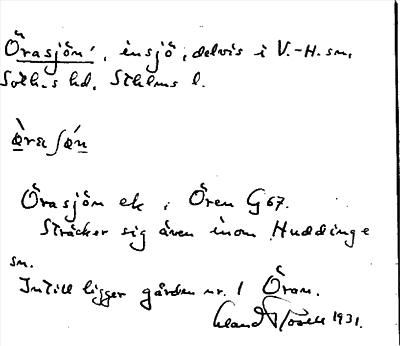 Örasjön, insjö, delvis i V.-H. sn,
Soth.s hd, Sthlms l.
Örasjön ek, Ören G 67.
Sträcker sig även inom Huddinge
sn.
Intill ligger gården nr. 1 Öran.
1931.